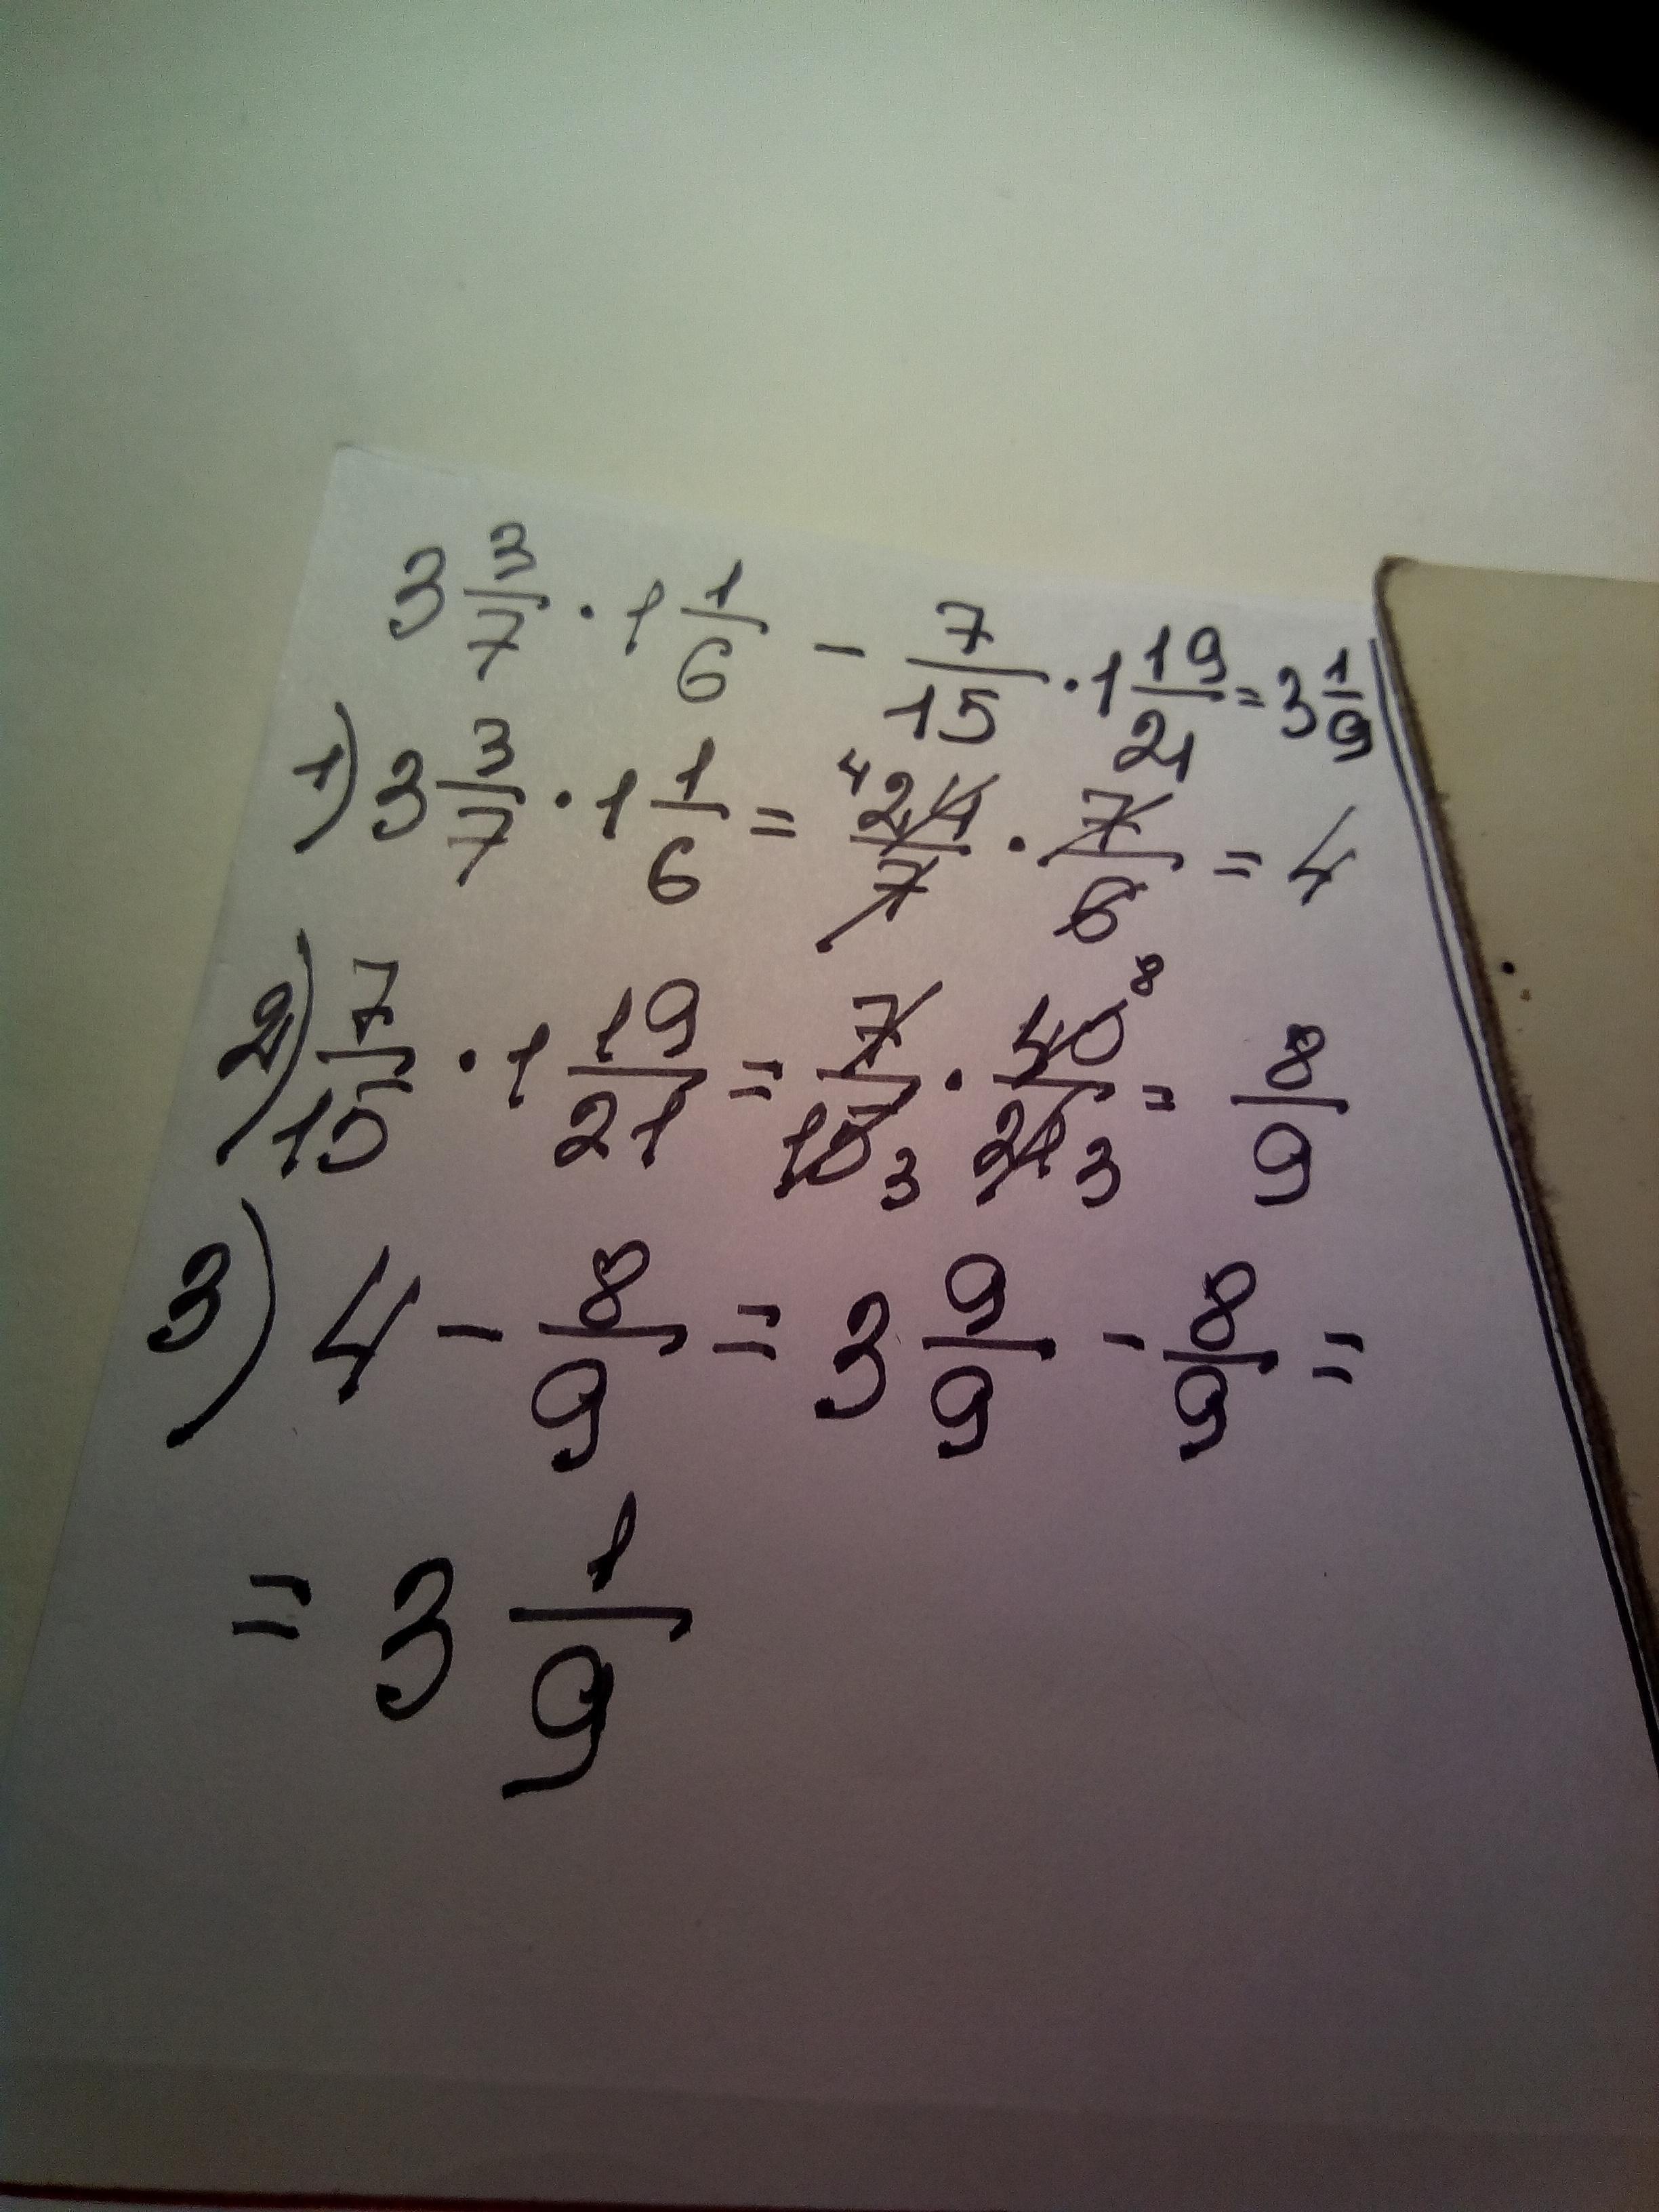 3 3/7 · 1 1/6 - 7/15 · 1 19/21 = 3 1/9
1) 3 3/7 · 1 1/6 = 4 24/7 · 7/6 = 4
2) 7/15 · 1 19/21 = 7/15 3 · 40 8/21 3 = 8/9
3) 4 - 8/9 = 3 9/9 - 8/9 =
= 3 1/9